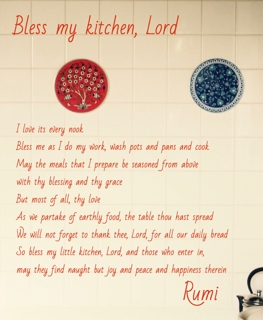 Bless my kitchen, Lord
I love its every nook
Bless me as I do my work, wash pots and pans and cook
May the meals that I prepare be seasoned from above
with thy blessing and thy grace
But most of all, thy love
As we partake of earthly food, the table thou hast spread
We will not forget to thank thee, Lord, for all our daily bread
So bless my little kitchen, Lord, and those who enter in,
may they find naught but joy and peace and happiness therein
Rumi